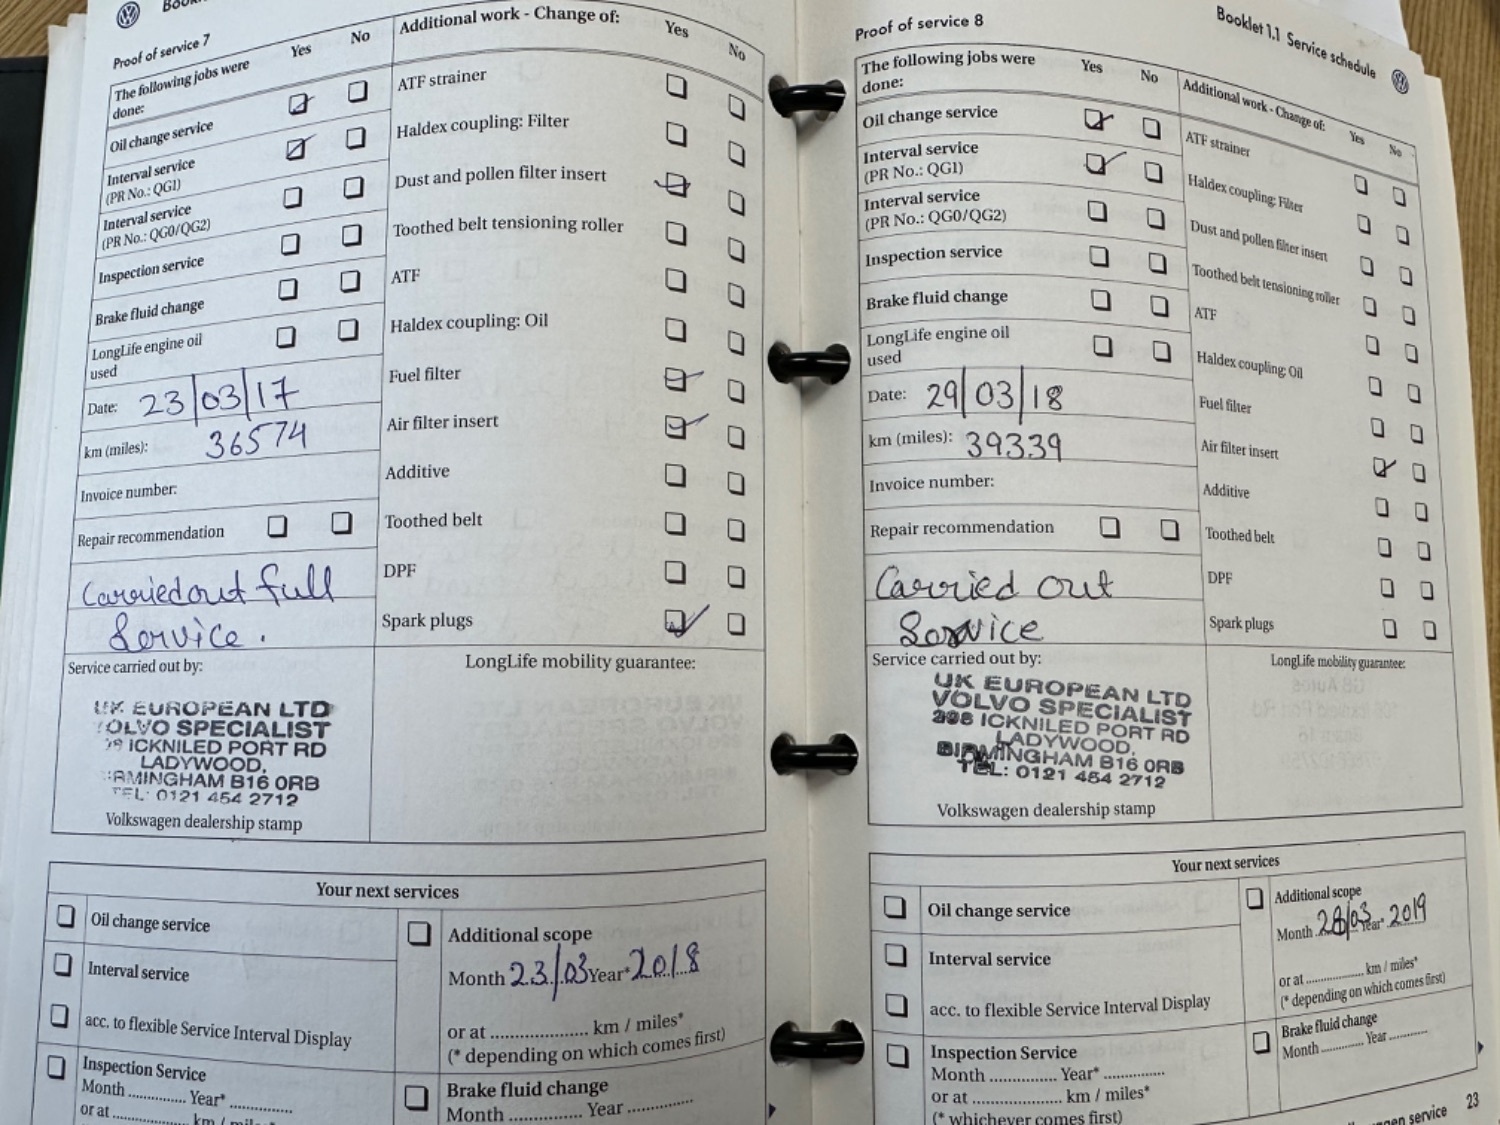 Proof of service 7
The following jobs were done:
Yes
No
Additional work - Change of:
Yes
No
Oil change service
Interval service
(PR No.: QG1)
Interval service
(PR No.: QG0/QG2)
Inspection service
Brake fluid change
LongLife engine oil
used
Date: 23/03/17
km (miles): 36574
Invoice number:
Repair recommendation
Carried out full
Service.
ATF strainer
Haldex coupling: Filter
Dust and pollen filter insert
Toothed belt tensioning roller
ATF
Haldex coupling: Oil
Fuel filter
Air filter insert
Additive
Toothed belt
DPF
Spark plugs
Service carried out by:
LongLife mobility guarantee:
UK EUROPEAN LTD
VOLVO SPECIALIST
ICKNILED PORT RD
LADYWOOD,
BIRMINGHAM B16 0RB
TEL: 0121 454 2712
Volkswagen dealership stamp
Your next services
Oil change service
Interval service
acc. to flexible Service Interval Display
Inspection Service
Month ............... Year* ...............
or at ............... km / miles*
Additional scope
Month 23/03 Year* 2018
or at .................. km / miles*
(* depending on which comes first)
Brake fluid change
Month ............... Year ...............
Booklet 1.1 Service schedule
Proof of service 8
The following jobs were
done:
Yes
No
Additional work - Change of:
Yes
No
Oil change service
Interval service
(PR No.: QG1)
Interval service
(PR No.: QG0/QG2)
Inspection service
Brake fluid change
LongLife engine oil
used
Date: 29/03/18
km (miles): 39339
Invoice number:
Repair recommendation
Carried out
Service
ATF strainer
Haldex coupling: Filter
Dust and pollen filter insert
Toothed belt tensioning roller
ATF
Haldex coupling: Oil
Fuel filter
Air filter insert
Additive
Toothed belt
DPF
Spark plugs
Service carried out by:
LongLife mobility guarantee:
UK EUROPEAN LTD
VOLVO SPECIALIST
298 ICKNILED PORT RD
LADYWOOD,
BIRMINGHAM B16 0RB
TEL: 0121 454 2712
Volkswagen dealership stamp
Your next services
Oil change service
Interval service
acc. to flexible Service Interval Display
Inspection Service
Month ............... Year* ...............
or at ............... km / miles*
(* whichever comes first)
Additional scope
Month 28/03 Year* 2019
or at ............... km / miles*
(* depending on which comes first)
Brake fluid change
Month ............... Year ...............
service 23